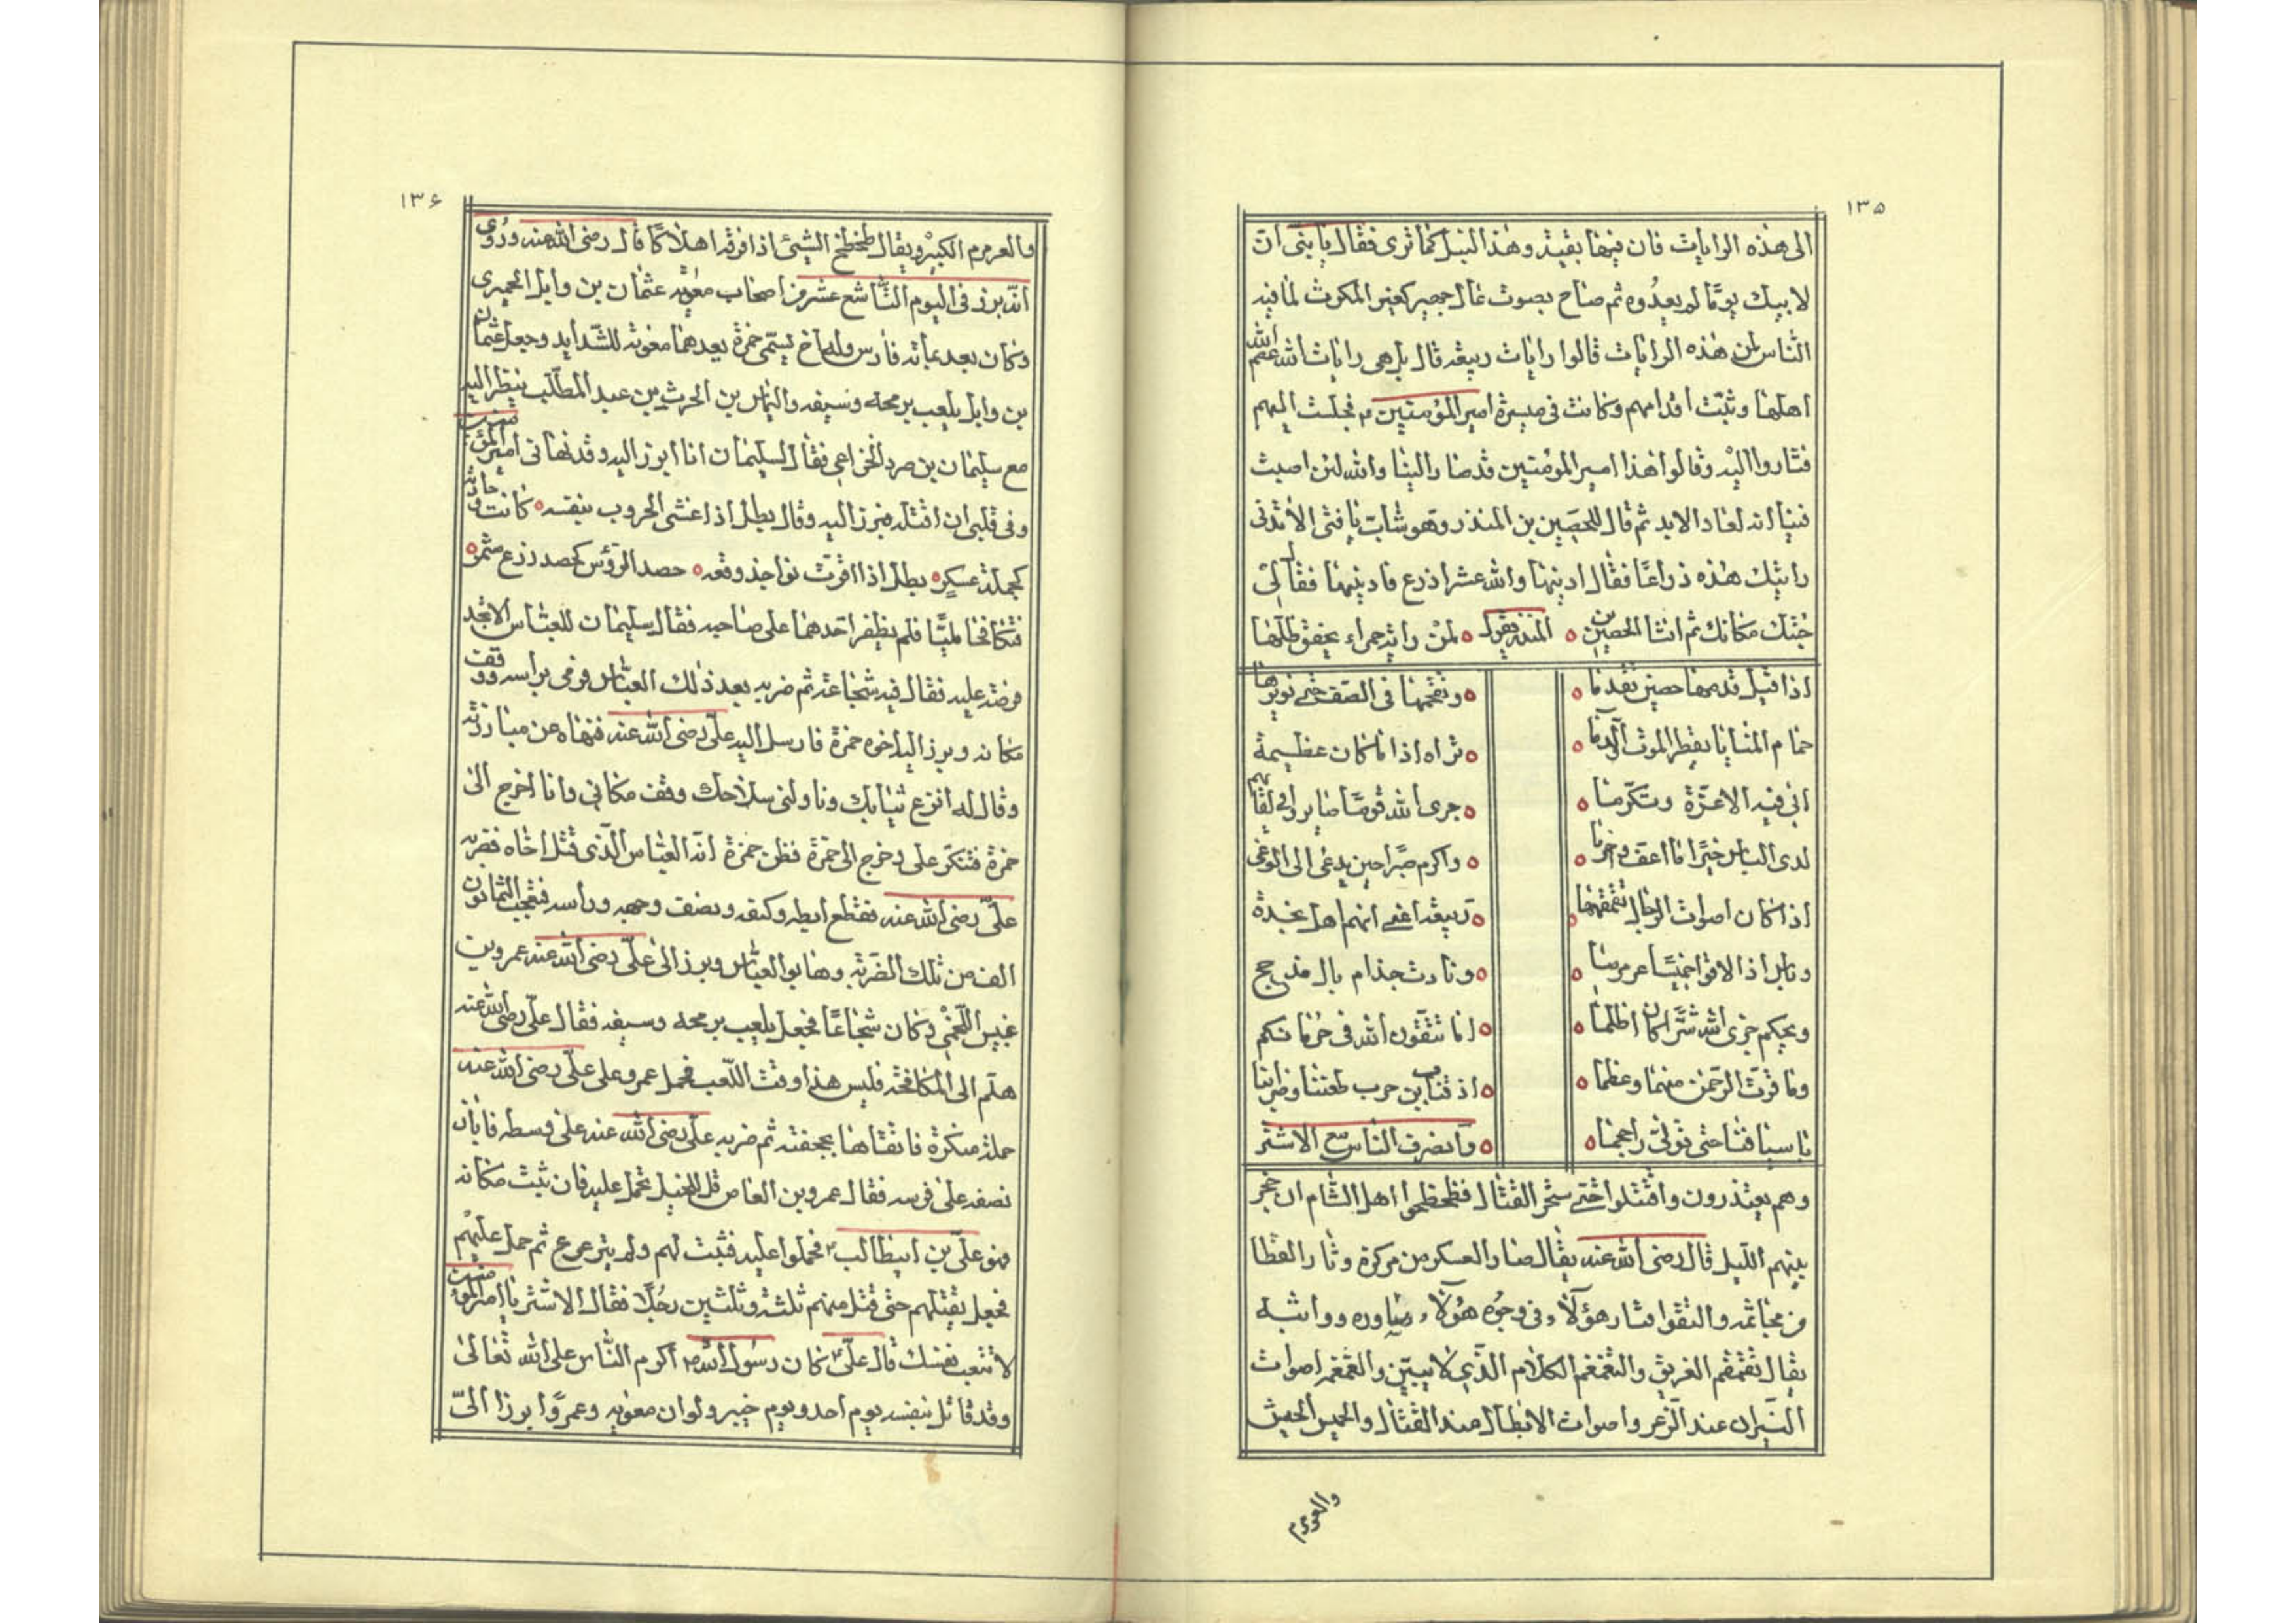 ١٣۵
الى هذه الرايات فان فيها بقية وهذا النبل كما ترى فقال يا بنى ان
لابيك يومًا لم يعدُوه ثم صاح بصوت عال جهير كغير المكرث لما فيه
الناس لمن هذه الرايات قالوا رايات ربيعة قال بل هى رايات الله عصم الله
اهلها وثبّت اقدامهم وكانت فى ميسرة امير المؤمنين م فجلت اليهم
فثاروا اليه وقالوا هذا امير المؤمنين قد صار الينا والله لئن اصيب
فينا انه لعار الابد ثم قال للحصين بن المنذر وهو شابّ يا فتى الا تدنى
رايتك هذه ذراعًا فقال ادنيها والله عشر اذرع فادنيها فقال لى
حَسْبك مكانك ثم انشا الحصين بن المنذر يقول لمنْ راية حمراء يخفق ظلّها
اذا قيل قدمها حصين تقدما
ويقحمها فى الصف حتى يزيرها
حمام المنايا يقطر الموت والدما
تراه اذا ما كان عظيمة
ابى فيه الا عزّة وتكرّما
جزى الله قومًا صابروا فى لقائهم
لدى الباس خيرًا ما اعف واكرما
واكرم صبرا حين يدعى الى الوغى
اذا كان اصوات الرجال تغمغما
ربيعة اعنى انهم اهل نجدة
وباس اذا لاقوا خميسًا عرمرما
ونادت جذام يال مذحج
ويحكم جزى الله شرًّا كان اظلما
اما تتقون الله فى حرماتكم
وما قرّب الرّحمن منها وعظما
اذقنا ابن حرب طعننا وضرابنا
باسيافنا حتى تولّى راحجما
وانصرف الناس مع الاشتر
وهم يعتذرون واقتتلوا حتى سحر القتال فطحطحوا اهل الشام ان حجز
بينهم الليل قال رضى الله عنه يقال صار العسكر من مركزة وثار القطا
من مجاثمه والتقوا فثار هؤلاء فى وجوه هؤلاء وساوره وواثبه
يقال تغمغم الغريق والتغمغم الكلام الذى لا يبيّن والغمغم اصوات
الثيران عند الذعر واصوات الابطال عند القتال والخميس الجيش
والعرمرم
١٣۶
والعرمرم الكبير ويقال طحطح الشيئ اذا فرقه اهلاكًا قال رضى الله عنه ورُوى
انّه برز فى اليوم التاسع عشر من اصحاب معوية عثمان بن وايل الحميرى
وكان يعد بمأية فارس وله اخ يسمّى حمزة يعدهما معوية للشّدايد وجعل عثمان
بن وايل يلعب برمحه وسيفه والعباس بن الحرث بن عبد المطّلب ينظر اليه
مع سليمان بن صرد الخزاعى فقال لسليمان انا ابرز اليه وقد نهانى امير المؤمنين
وفى قلبى ان اقتله فبرز اليه وقال بطل اذا غشى الحروب بنفسه كانت
كجملة عسكر بطل اذا افترت نواجذ وقعه حصد الرؤس كحصد زرع مثمر
فتكافحا مليّا فلم يظفر احدهما على صاحبه فقال سليمان للعباس الا تجد
فرصة عليه فقال فيه شجاعة ثم ضربه بعد ذلك العباس فرمى براسه ووقف
مكانه وبرز اليه اخوه حمزة فارسل اليه علىّ رضى الله عنه فنهاه عن مبارزته
وقال له انزع ثيابك وناولنى سلاحك وقف مكانى وانا اخرج الى
حمزة فتنكّر على وخرج الى حمزة فظن حمزة انّه العباس الّذى قتل اخاه فضربه
علىّ رضى الله عنه فقطع ابطه وكتفه ونصف وجهه وراسه فتعجب اليمانون
الف من تلك الضّربة وهابوا العباس وبرز الى علىّ رضى الله عنه عمرو بن
عبس اللّخمى وكان شجاعًا فجعل يلعب برمحه وسيفه فقال علىّ رضى الله عنه
هلّم الى المكافحة فليس هذا وقت اللّعب فحمل عمرو على علىّ رضى الله عنه
حملة منكرة فاتقاها بجحفته ثم ضربه علىّ رضى الله عنه على وسطه فابان
نصفه على فرسه فقال عمرو بن العاص قل للخيل تحمل عليه فان ثبت مكانه
فهو علىّ بن ابيطالب فحملوا عليه فثبت لهم ولم يتزعزع ثم حمل عليهم
فجعل يقتلهم حتى قتل منهم ثلثة وثلثين رجُلًا فقال الاشتر يا امير المؤمنين
لا تتعب نفسك قال علىّ كان رسول الله ص اكرم النّاس على الله تعالى
وقد قاتل بنفسه يوم احد ويوم خيبر ولو ان معوية وعمرًوا برزا الىّ